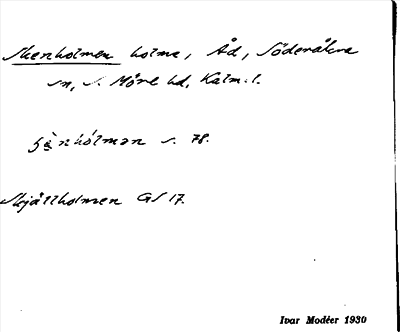 Skenholmen holme, Åd, Söderåkra
sn, S. Möre hd, Kalm. l.
s. 78.
Skjällholmen GS 17.
Ivar Modéer 1930